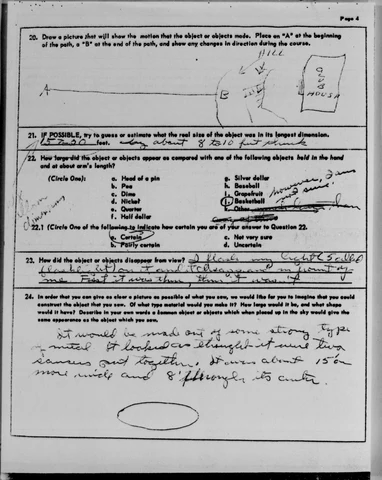 Page 4
20. Draw a picture that will show the motion that the object or objects made. Place an "A" at the beginning
of the path, a "B" at the end of the path, and show any changes in direction during the course.
HILL
A
B
HOUSE
21. IF POSSIBLE, try to guess or estimate what the real size of the object was in its longest dimension.
15 to 20 feet. about 8 to 10 feet
22. How large did the object or objects appear as compared with one of the following objects held in the hand
and at about arm's length?
(Circle One): a. Head of a pin g. Silver dollar
b. Pea h. Baseball
c. Dime i. Grapefruit
d. Nickel j. Basketball
e. Quarter k. Other
f. Half dollar
however, I am
not sure.
22.1 (Circle One of the following to indicate how certain you are of your answer to Question 22.
a. Certain c. Not very sure
b. Fairly certain d. Uncertain
23. How did the object or objects disappear from view? I
it and it disappeared in front of
me. First it was there, then it wasn't
24. In order that you can give as clear a picture as possible of what you saw, we would like for you to imagine that you could
construct the object that you saw. Of what type material would you make it? How large would it be, and what shape
would it have? Describe in your own words a common object or objects which when placed up in the sky would give the
same appearance as the object which you saw.
It would be made out of some strong type
metal. It looked as though it were two
saucers put together. It was about 15' or
more wide and 8' through its center.